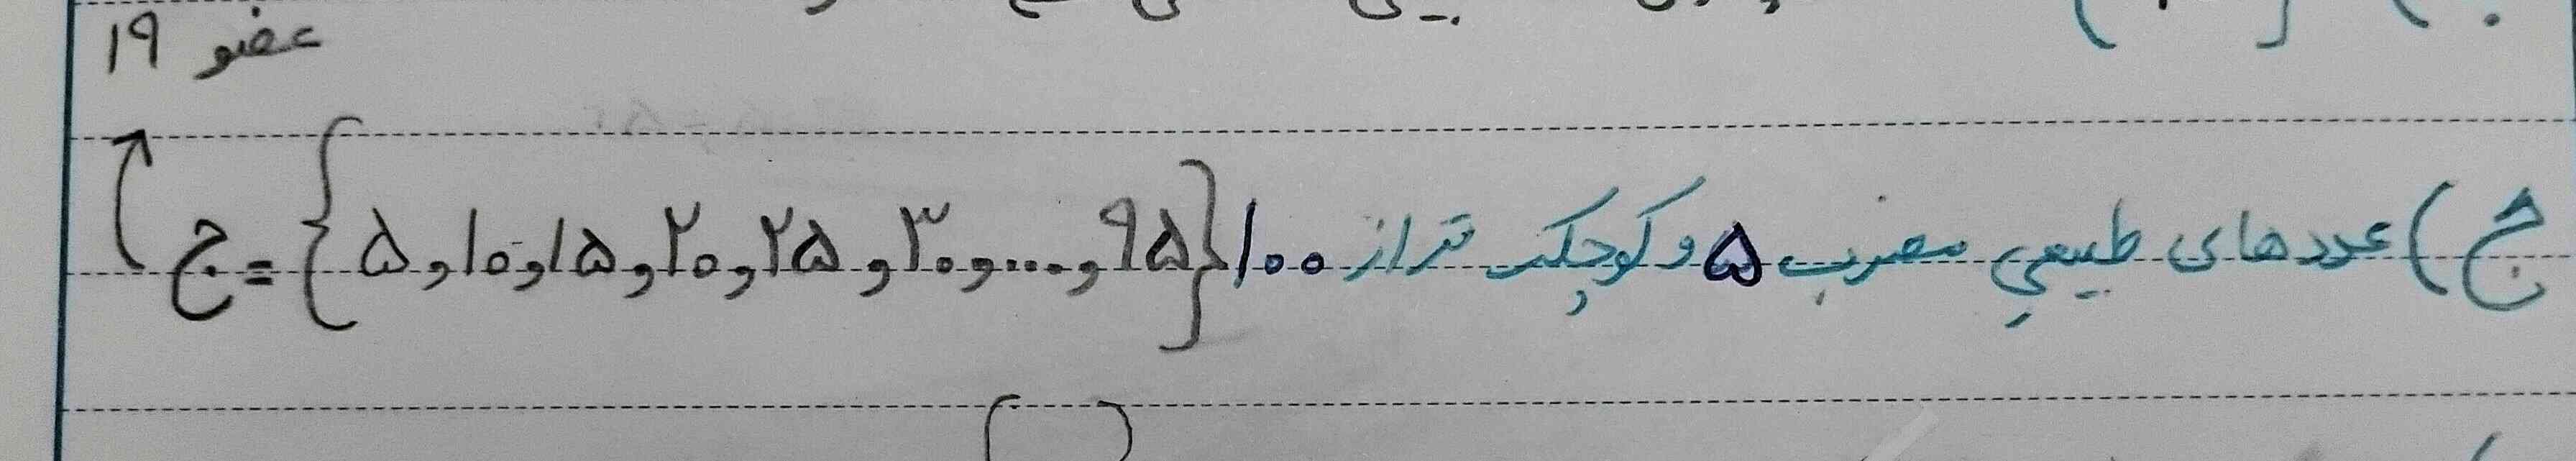 ۱۹ عضو
ج) عددهای طبیعی مضرب ۵ و کوچکتر از ۱۰۰
ج = {۵ , ۱۰ , ۱۵ , ۲۰ , ۲۵ , ۳۰ , ... , ۹۵}